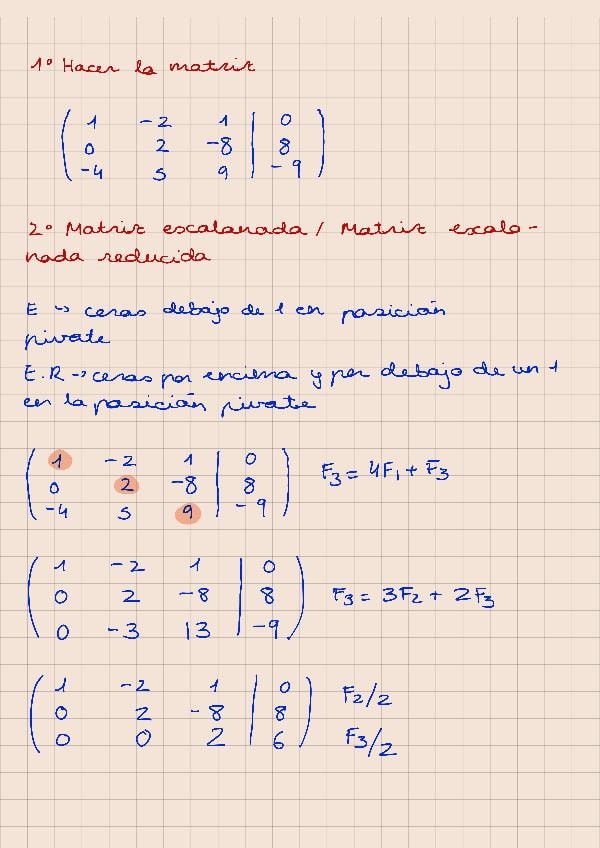 1º Hacer la matriz
1 -2 1 | 0
0 2 -8 | 8
-4 5 9 | -9
2º Matriz escalonada / Matriz escalo-
nada reducida
E → ceros debajo de 1 en posición
pivote
E.R → ceros por encima y por debajo de un 1
en la posición pivote
1 -2 1 | 0
0 2 -8 | 8 F₃ = 4F₁ + F₃
-4 5 9 | -9
1 -2 1 | 0
0 2 -8 | 8 F₃ = 3F₂ + 2F₃
0 -3 13 | -9
1 -2 1 | 0 F₂/2
0 2 -8 | 8
0 0 2 | 6 F₃/2